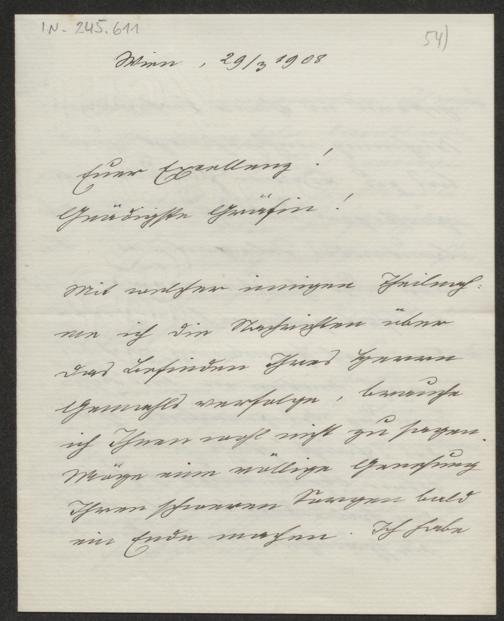 IN-245.611
54)
Wien, 29/3 1908
Euer Excellenz!
Gnädigste Gräfin!
Mit welcher innigen Theilnah-
me ich die Nachrichten über
das Befinden Ihres Herrn
Gemahls verfolge, brauche
ich Ihnen wohl nicht zu sagen.
Möge eine völlige Genesung
Ihren schweren Sorgen bald
ein Ende machen. Ich habe